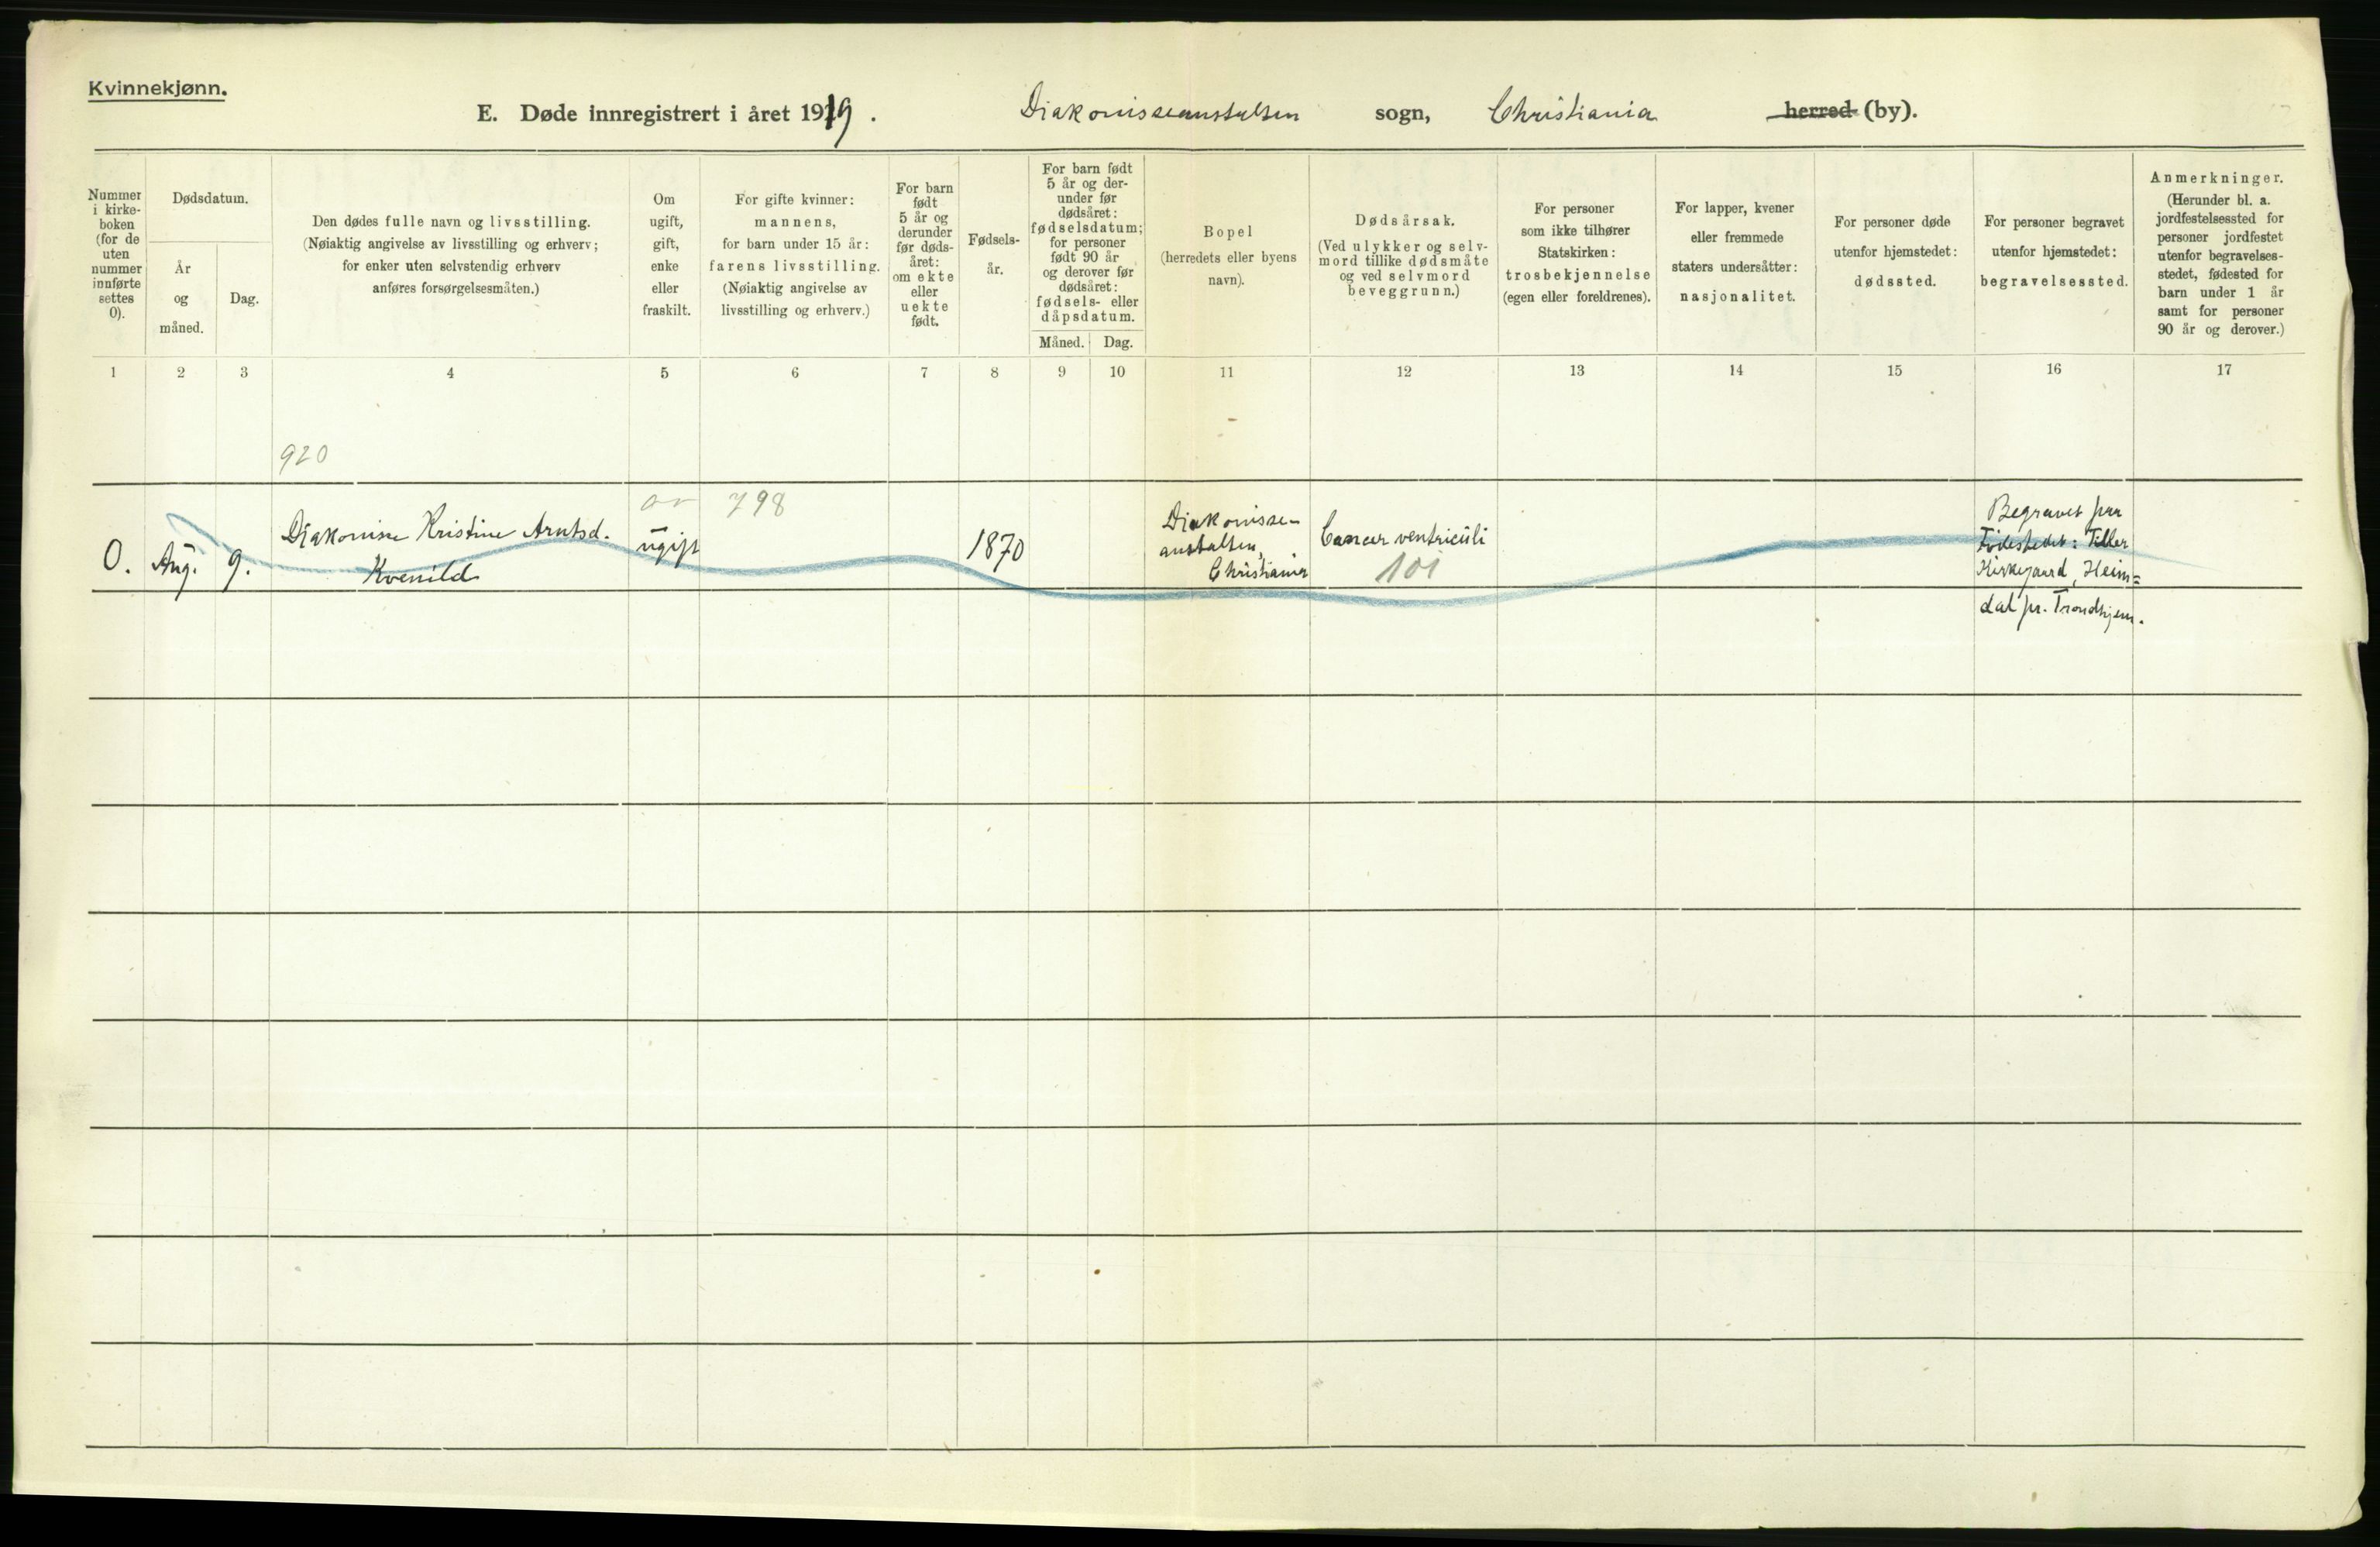 Kvinnekjønn.
E. Døde innregistrert i året 1919. Diakonisseanstalten sogn, Christiania herred (by).
Nummer
i kirke-
boken
(for de
uten
nummer
innførte
settes
0).
Dødsdatum.
År
og
måned.
Dag.
Den dødes fulle navn og livsstilling.
(Nøiaktig angivelse av livsstilling og erhverv;
for enker uten selvstendig erhverv
anføres forsørgelsesmåten.)
Om
ugift,
gift,
enke
eller
fraskilt.
For gifte kvinner:
mannens,
for barn under 15 år:
farens livsstilling.
(Nøiaktig angivelse av
livsstilling og erhverv.)
For barn
født
5 år og
derunder
før døds-
året:
om ekte
eller
uekte
født.
Fødsels-
år.
For barn født
5 år og der-
under før
dødsåret:
fødselsdatum;
for personer
født 90 år
og derover før
dødsåret:
fødsels- eller
dåpsdatum.
Måned. Dag.
Bopel
(herredets eller byens
navn).
Dødsårsak.
(Ved ulykker og selv-
mord tillike dødsmåte
og ved selvmord
beveggrunn.)
For personer
som ikke tilhører
Statskirken:
trosbekjennelse
(egen eller foreldrenes).
For lapper, kvener
eller fremmede
staters undersåtter:
nasjonalitet.
For personer døde
utenfor hjemstedet:
dødssted.
For personer begravet
utenfor hjemstedet:
begravelsessted.
Anmerkninger.
(Herunder bl. a.
jordfestelsessted for
personer jordfestet
utenfor begravelses-
stedet, fødested for
barn under 1 år
samt for personer
90 år og derover.)
1 2 3 4 5 6 7 8 9 10 11 12 13 14 15 16 17
920
798
0. Aug. 9.
Diakonisse Kristine Arntsd.
Kvenild
ugift
1870
Diakonisse-
anstalten,
Christiania
Cancer ventriculi
101
Begravet paa
Fødestedet: Tiller
Kirkegaard, Heim=
dal pr. Trondhjem.